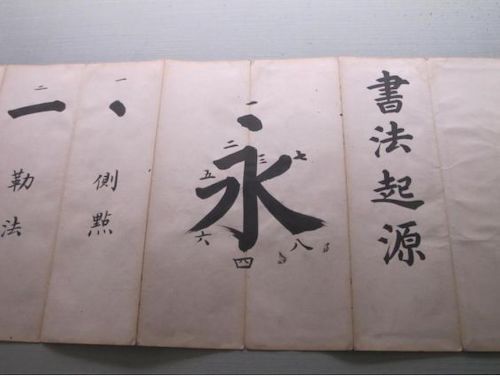 書法起源
永
一
二
三
四
五
六
七
八
一
側點
二
勒法